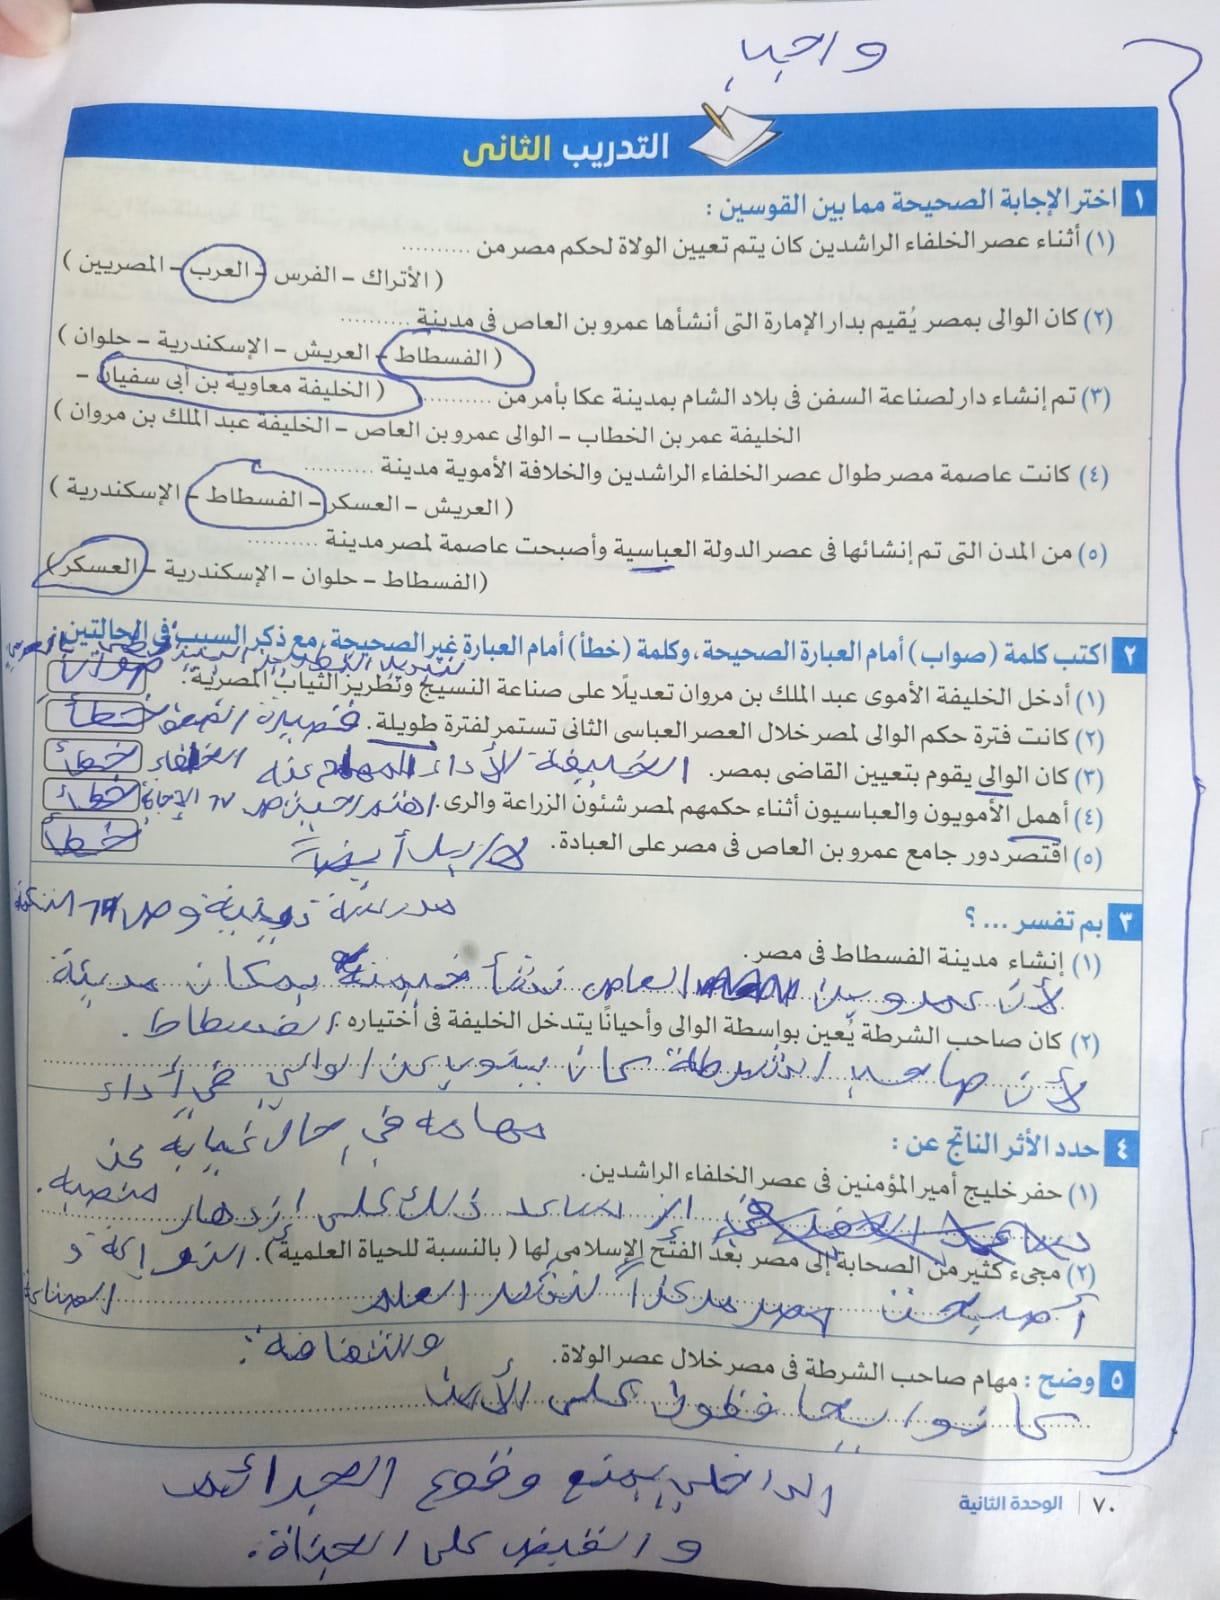 واجب
التدريب الثانى
١ اختر الإجابة الصحيحة مما بين القوسين :
(١) أثناء عصر الخلفاء الراشدين كان يتم تعيين الولاة لحكم مصر من ..........
( الأتراك – الفرس – العرب – المصريين )
(٢) كان الوالى بمصر يُقيم بدار الإمارة التى أنشأها عمرو بن العاص فى مدينة ..........
( الفسطاط – العريش – الإسكندرية – حلوان )
(٣) تم إنشاء دار لصناعة السفن فى بلاد الشام بمدينة عكا بأمر من .......... ( الخليفة معاوية بن أبى سفيان –
الخليفة عمر بن الخطاب – الوالى عمرو بن العاص – الخليفة عبد الملك بن مروان )
(٤) كانت عاصمة مصر طوال عصر الخلفاء الراشدين والخلافة الأموية مدينة ..........
( العريش – العسكر – الفسطاط – الإسكندرية )
(٥) من المدن التى تم إنشائها فى عصر الدولة العباسية وأصبحت عاصمة لمصر مدينة ..........
(الفسطاط – حلوان – الإسكندرية – العسكر)
٢ اكتب كلمة (صواب) أمام العبارة الصحيحة، وكلمة (خطأ) أمام العبارة غير الصحيحة، مع ذكر السبب فى الحالتين :
(١) أدخل الخليفة الأموى عبد الملك بن مروان تعديلًا على صناعة النسيج وتطريز الثياب المصرية. صواب
(٢) كانت فترة حكم الوالى لمصر خلال العصر العباسى الثانى تستمر لفترة طويلة. قصيرة خطأ
(٣) كان الوالى يقوم بتعيين القاضى بمصر. الخليفة لأداء المهام عنه خطأ
(٤) أهمل الأمويون والعباسيون أثناء حكمهم لمصر شئون الزراعة والرى. اهتم ص ٦٧ الإجابة خطأ
(٥) اقتصر دور جامع عمرو بن العاص فى مصر على العبادة. لا/ بل أيضاً خطأ
مدرسة دينية وص ٦٩ التكملة
٣ بم تفسر ... ؟
(١) إنشاء مدينة الفسطاط فى مصر.
لأن عمرو بن العاص نشأ خيمته بمكان مدينة
الفسطاط.
(٢) كان صاحب الشرطة يُعين بواسطة الوالى وأحيانًا يتدخل الخليفة فى أختياره.
لأن صاحب الشرطة كان ينوب عن الوالي في أداء
مهامه في حال غيابه عن
منصبه.
٤ حدد الأثر الناتج عن :
(١) حفر خليج أمير المؤمنين فى عصر الخلفاء الراشدين.
ساعد ذلك على إزدهار
الزراعة و
الصناعة
(٢) مجىء كثير من الصحابة إلى مصر بعد الفتح الإسلامى لها ( بالنسبة للحياة العلمية).
أصبحت مصر مركزاً لنشر العلم
والثقافة.
٥ وضح : مهام صاحب الشرطة فى مصر خلال عصر الولاة.
كانوا يحافظون على الأمن
الداخلي بمنع وقوع الجرائم
والقبض على الجناة.
٧٠ | الوحدة الثانية